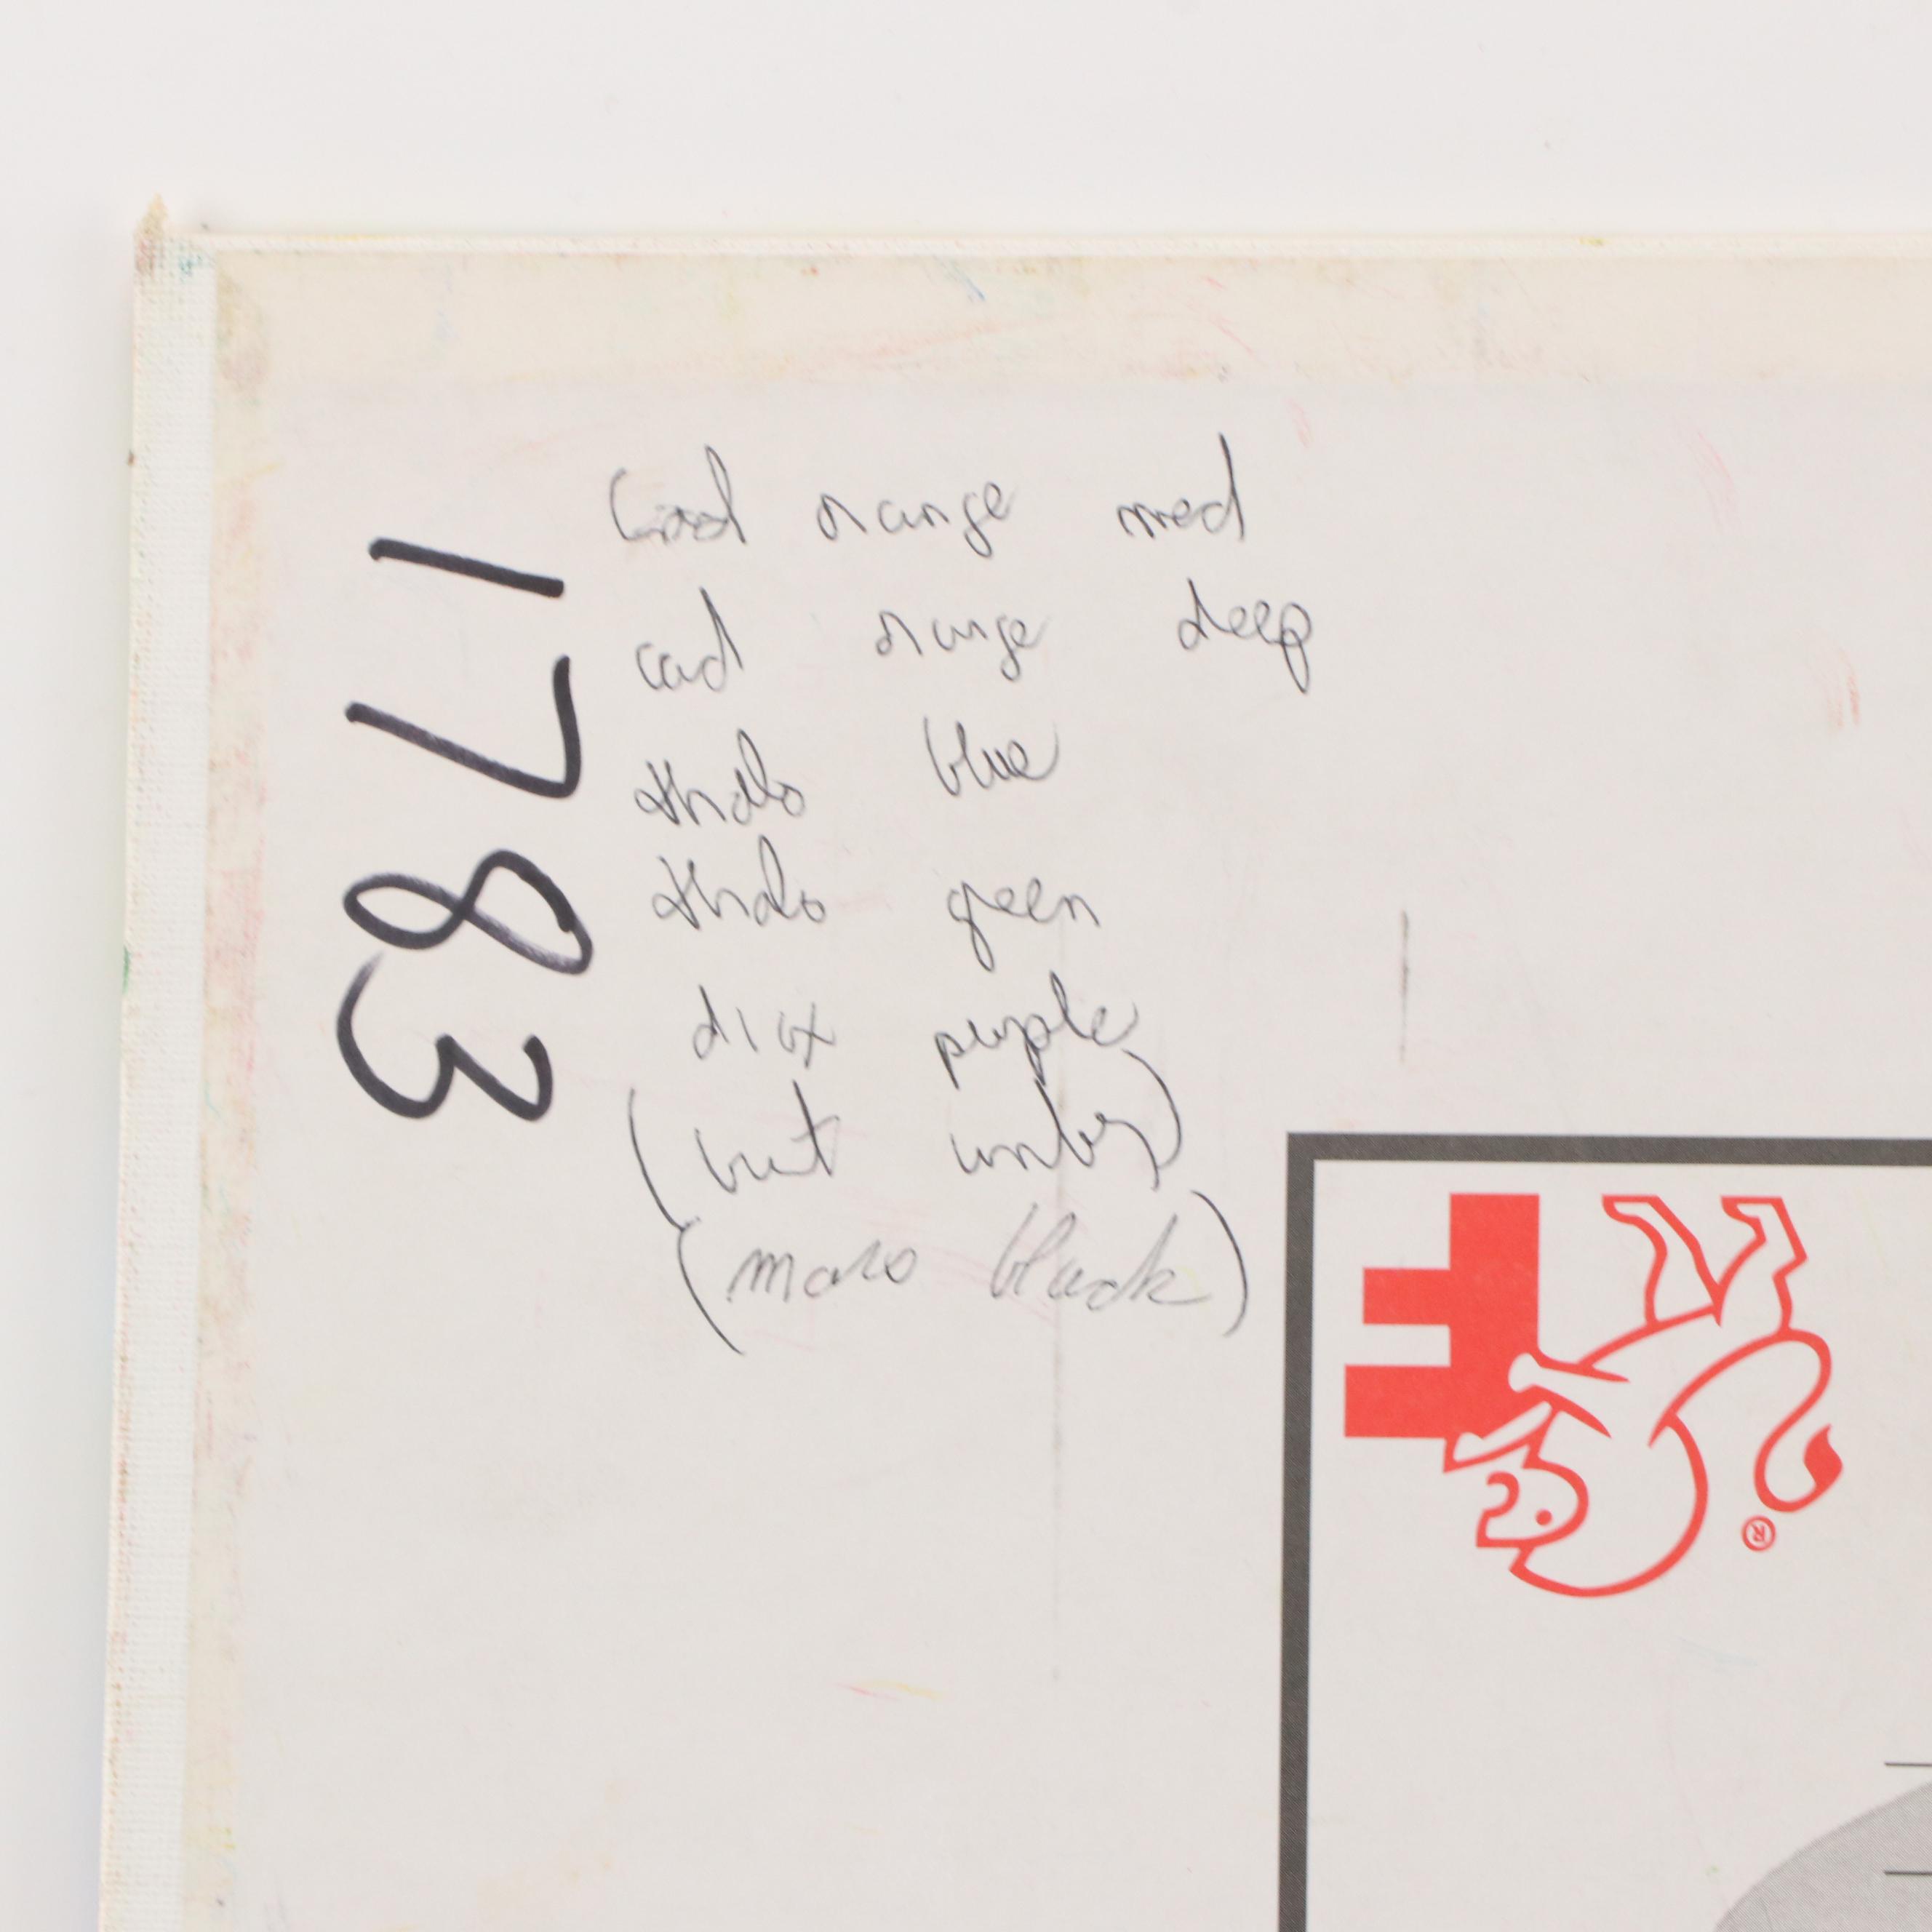 1783
Cad orange med
cad orange deep
thalo blue
thalo green
diox purple
(burnt umber)
(mars black)
®